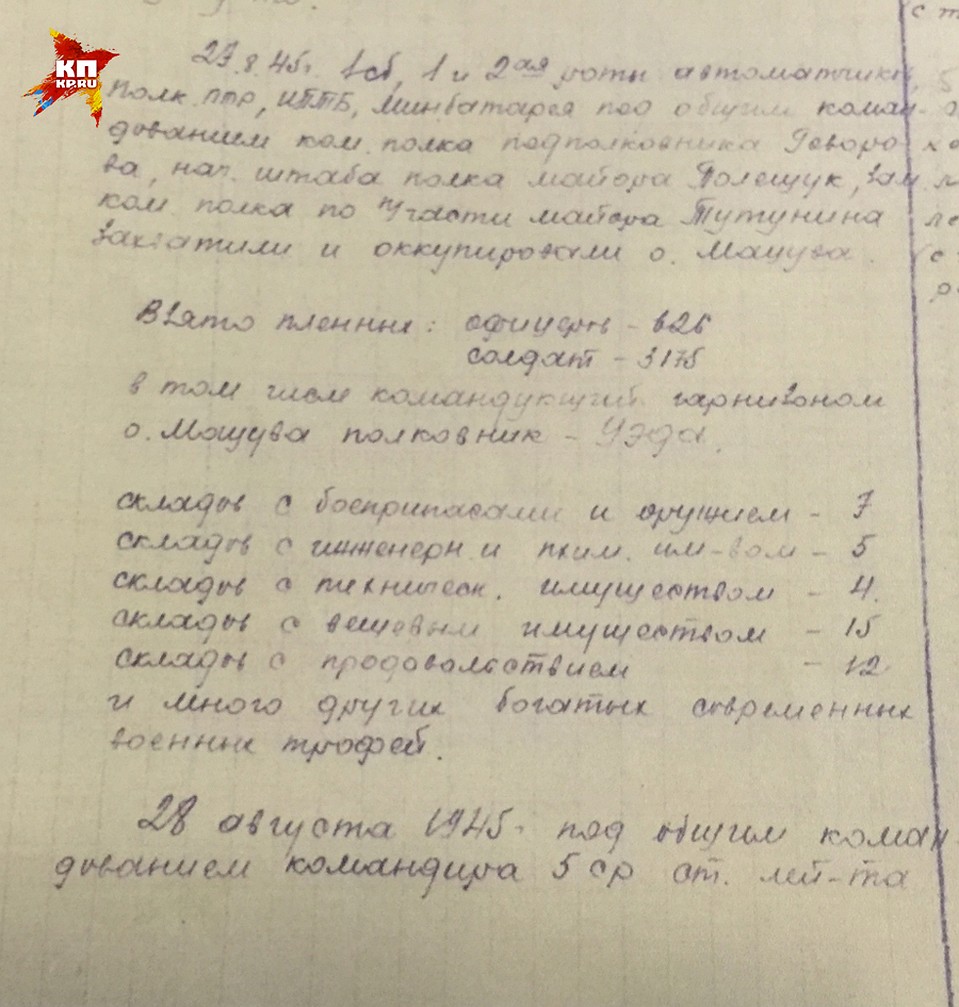 КП
KP.RU
23.8.45г. 1сб, 1 и 2ая роты автоматчиков,
полк. ПТР, ИПТБ, минбатарея под общим коман-
дованием ком. полка подполковника Геворо
ва, нач. штаба полка майора Полещук, зам.
ком. полка по п/части майора Тутунина
захватили и оккупировали о. Мацува.
Взято пленных: офицеров -
солдат - 3175
в том числе командующий гарнизоном
о. Мацува полковник - Уэда.
складов с боеприпасами и оружием - 7
складов с инженерн. и хим. им-вом - 5
складов с техническ. имуществом - 4.
складов с вещевым имуществом - 15
складов с продовольствием - 12
и много других богатых современных
военных трофей.
28 августа 1945г. под общим коман-
дованием командира 5 ср ст. лей-та